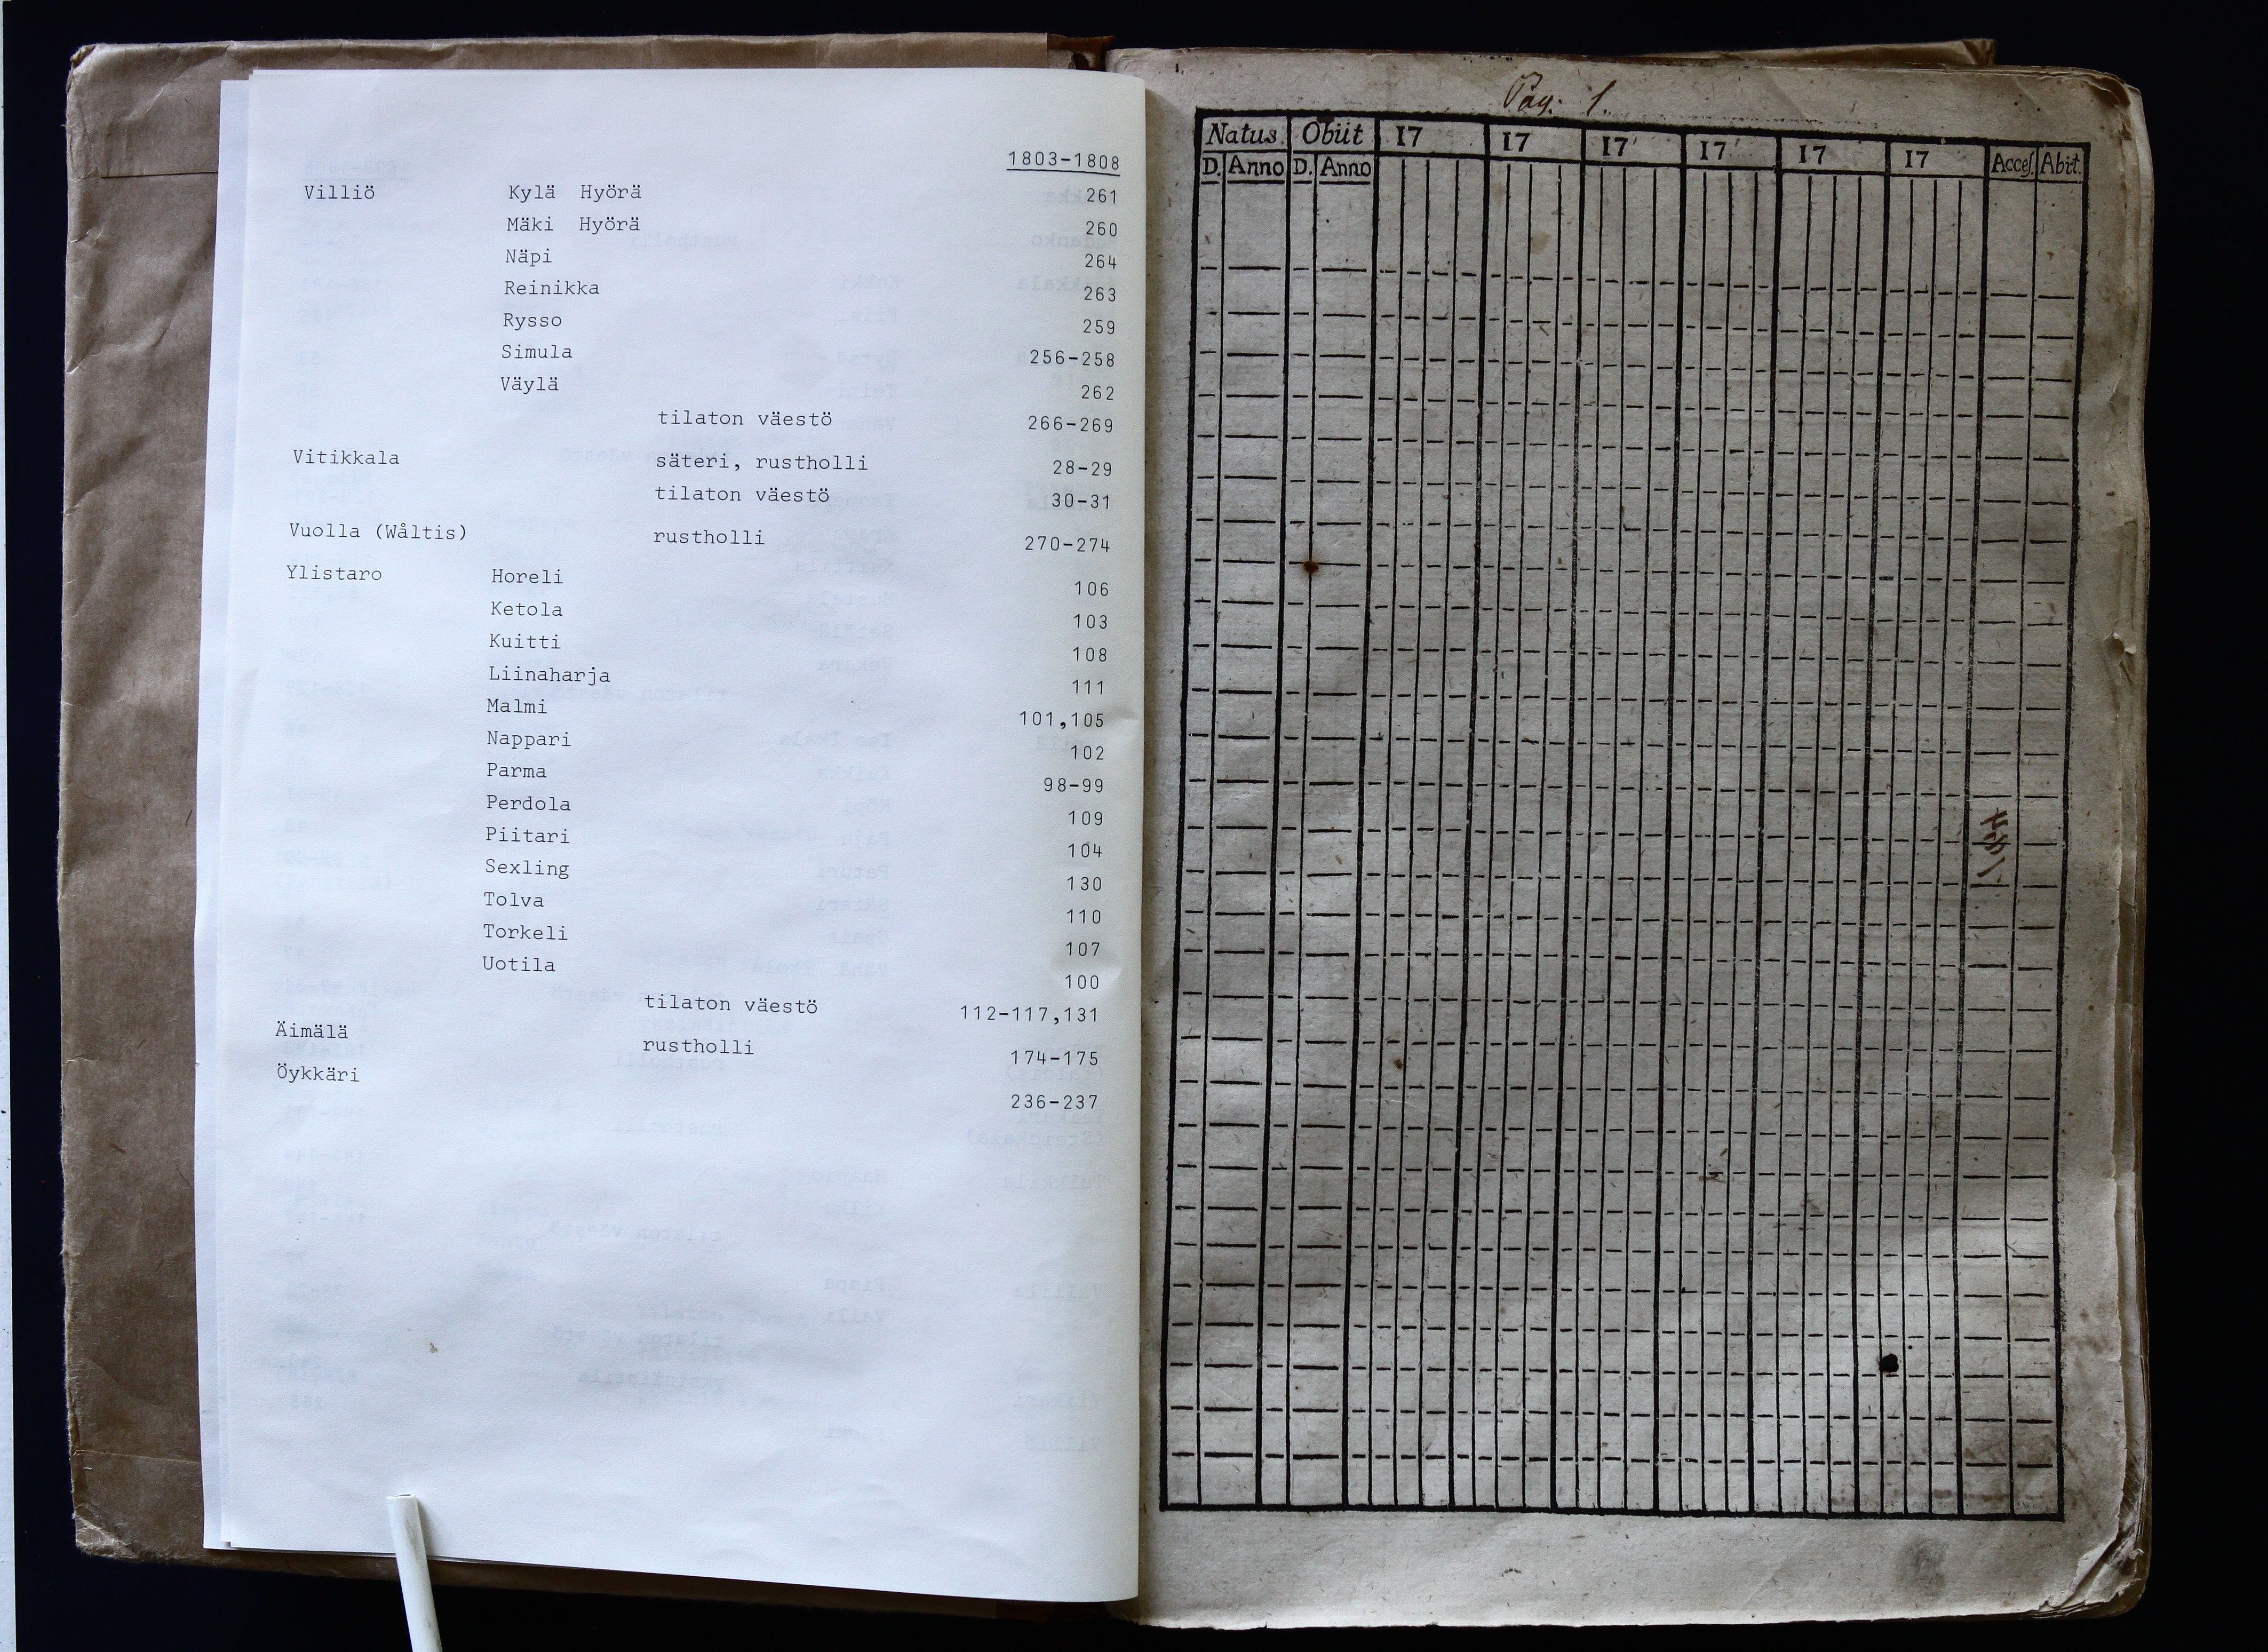 1803-1808
Villiö Kylä Hyörä 261
Mäki Hyörä 260
Näpi 264
Reinikka 263
Rysso 259
Simula 256-258
Väylä 262
tilaton väestö 266-269
Vitikkala säteri, rustholli 28-29
tilaton väestö 30-31
Vuolla (Wåltis) rustholli 270-274
Ylistaro Horeli 106
Ketola 103
Kuitti 108
Liinaharja 111
Malmi 101,105
Nappari 102
Parma 98-99
Perdola 109
Piitari 104
Sexling 130
Tolva 110
Torkeli 107
Uotila 100
tilaton väestö 112-117,131
Äimälä rustholli 174-175
Öykkäri 236-237
Pag. 1.
Natus Obiit 17 17 17 17 17 17
D. Anno D. Anno Acces. Abit.